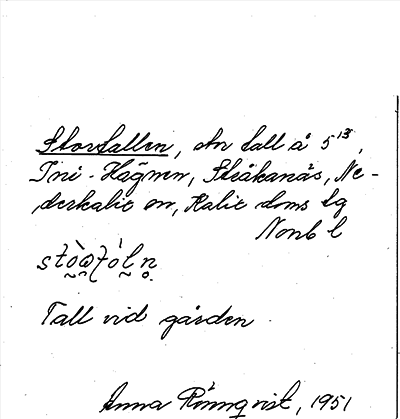 Stortallen, stor tall å 5¹³,
Ini-Hagnen, Stråkanäs, Ne-
derkalix sn, Kalix doms lg
Nonb l
Tall vid gården
Anna Rönnqvist, 1951